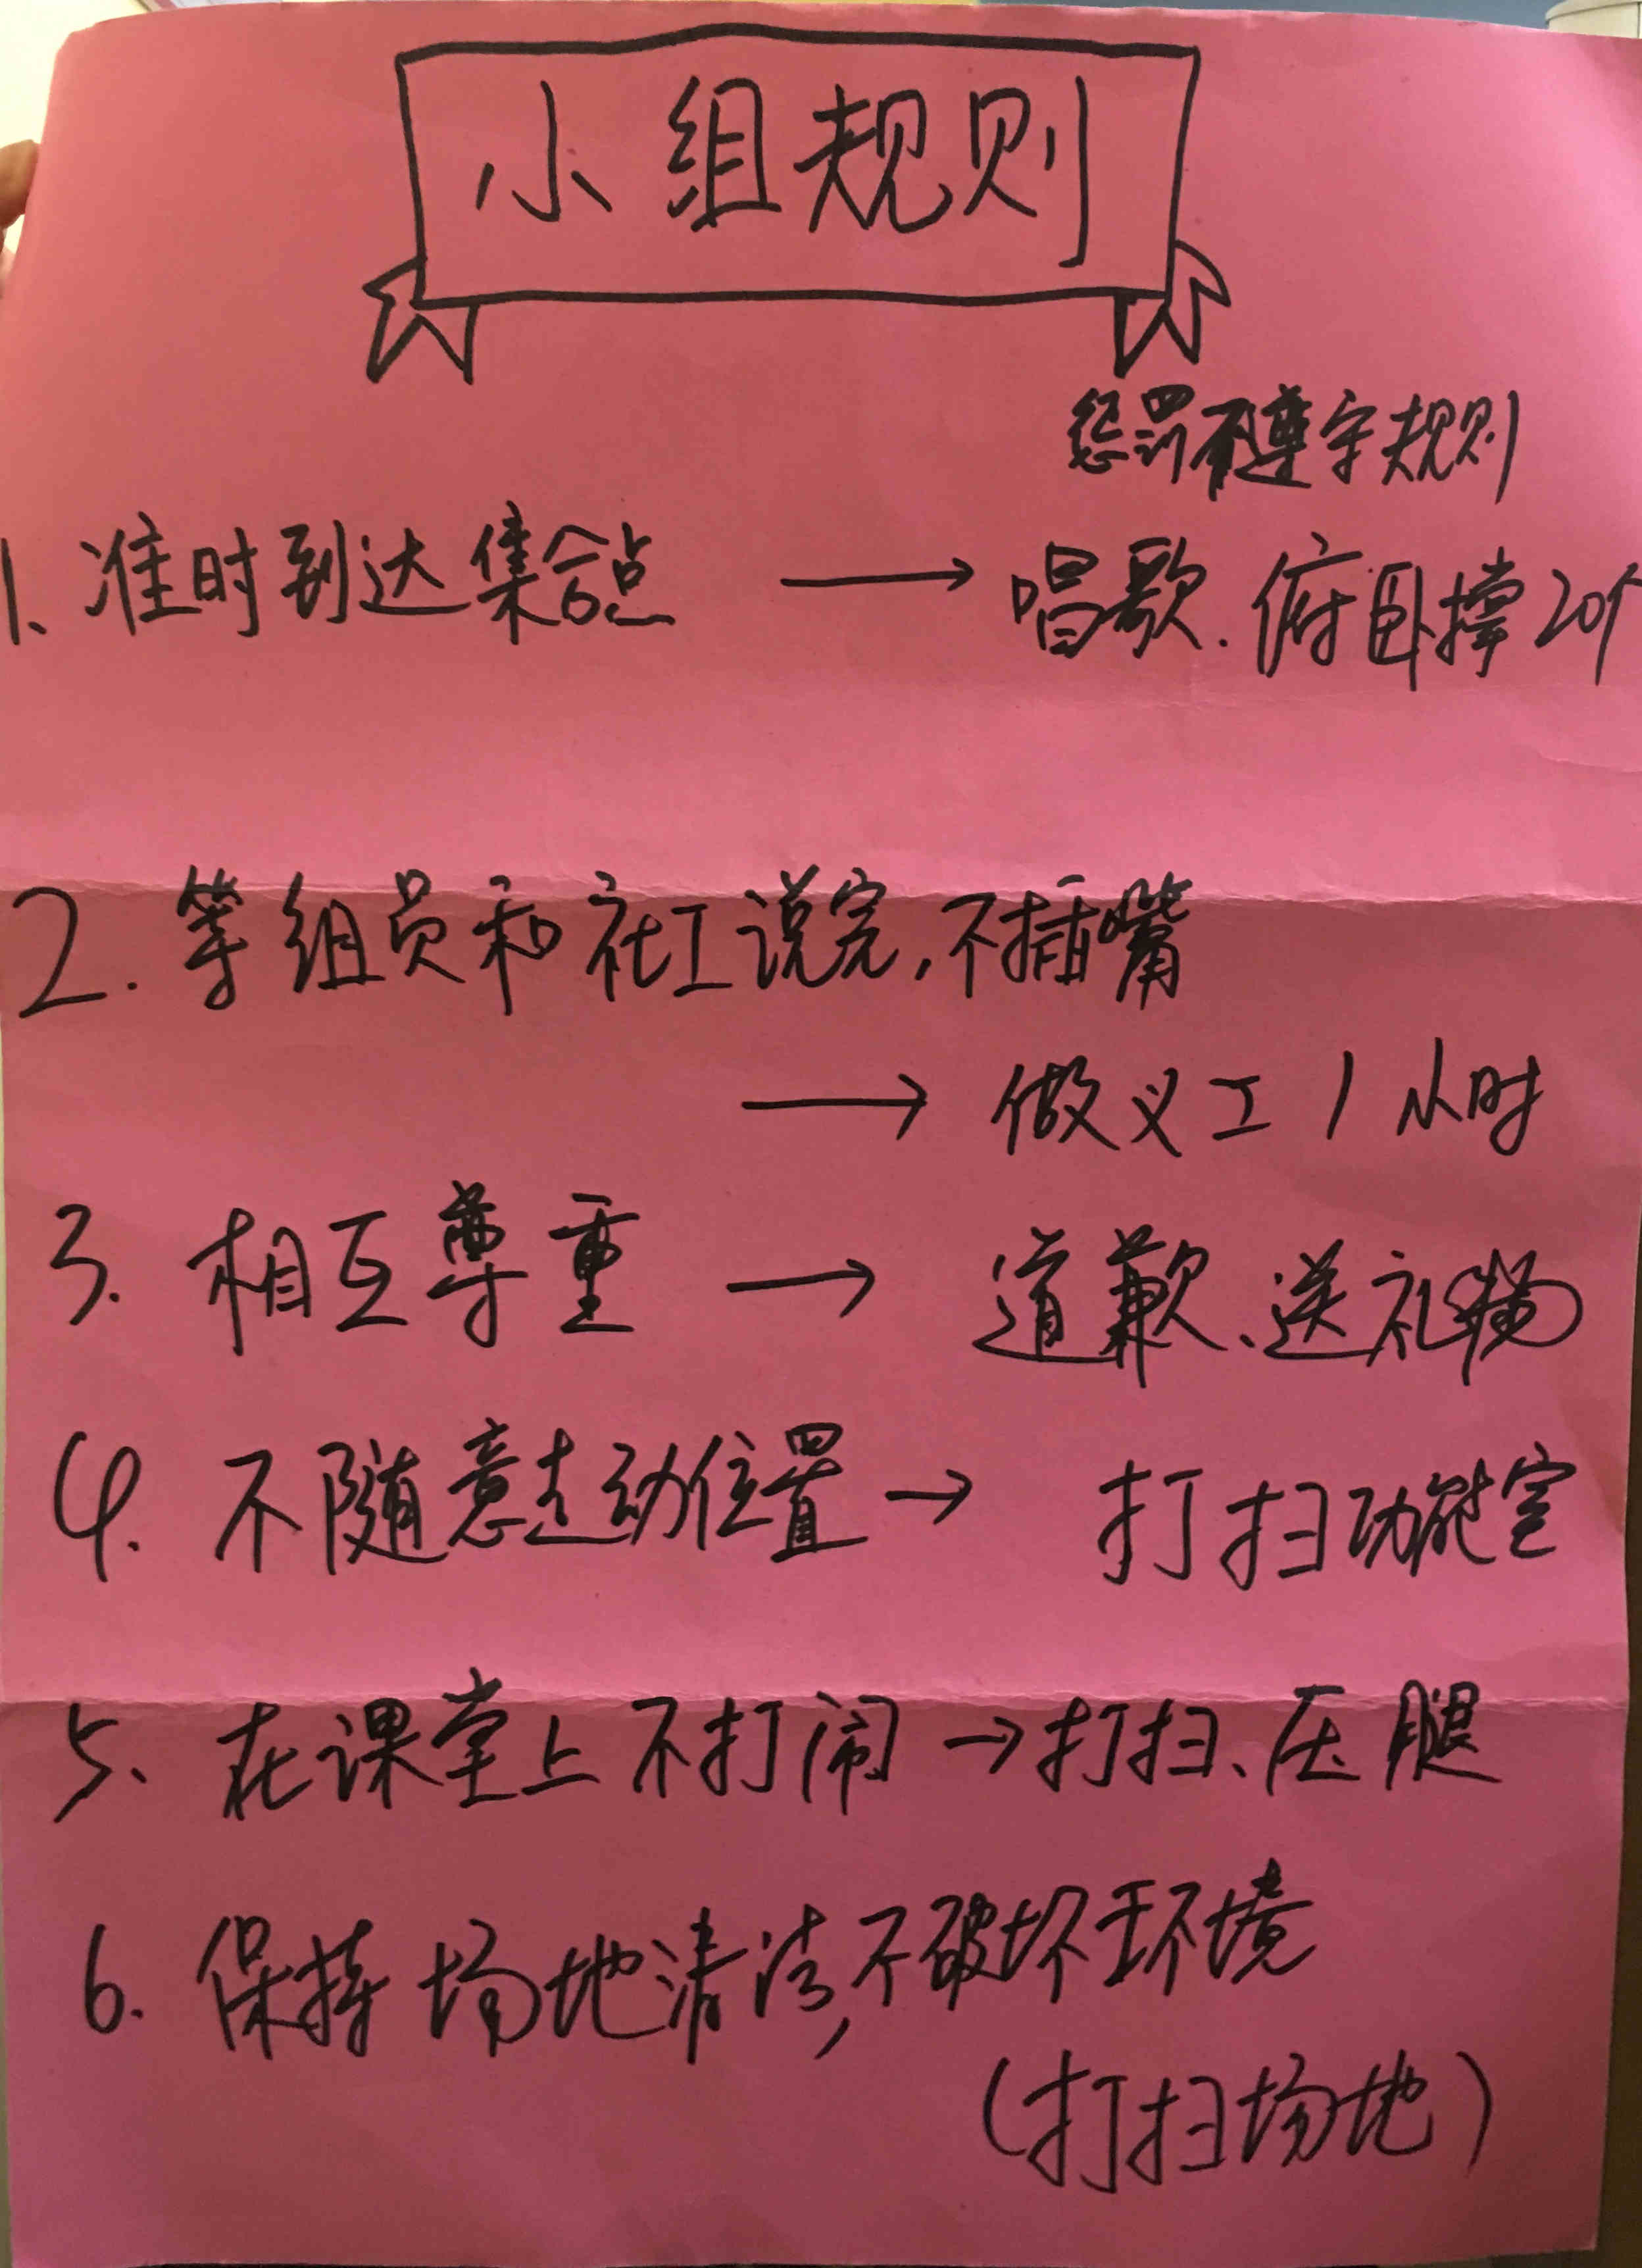 小组规则
惩罚不遵守规则
1、准时到达集合点 → 唱歌.俯卧撑20个
2.等组员和社工说完,不插嘴
→ 做义工1小时
3.相互尊重 → 道歉、送礼物
4.不随意走动位置 → 打扫功能室
5、在课堂上不打闹 → 打扫、压腿
6.保持场地清洁,不破坏环境
(打扫场地)